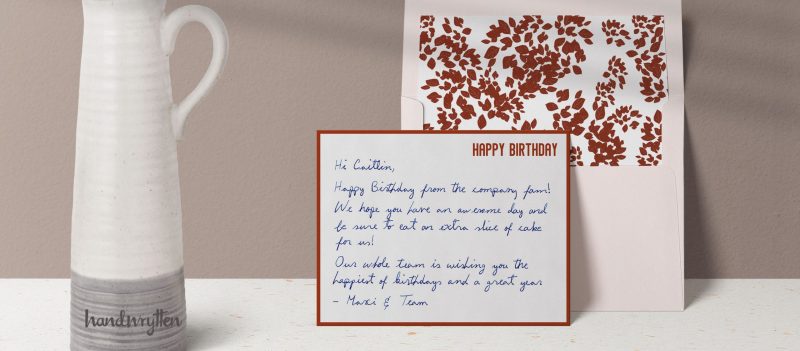 HAPPY BIRTHDAY
Hi Caitlin,
Happy Birthday from the company fam!
We hope you have an awesome day and
be sure to eat an extra slice of cake
for us!
Our whole team is wishing you the
happiest of birthdays and a great year
- Maxi & Team
handwrytten